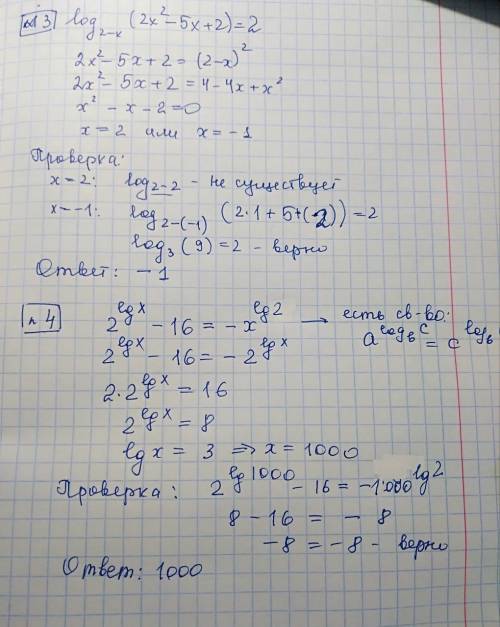 №3 log₂₋ₓ (2x²−5x+2)=2
2x²−5x+2=(2−x)²
2x²−5x+2=4−4x+x²
x²−x−2=0
x=2 или x=−1
Проверка:
x=2: log₂₋₂ − не существует
x=−1: log₂₋₍₋₁₎ (2·1+5+(2))=2
log₃(9)=2 − верно
Ответ: −1
№4 2^lgx −16=−x^lg2 → есть св-во:
2^lgx −16=−2^lgx a^log_b c = c^log_b
2·2^lgx=16
2^lgx=8
lgx=3 ⇒ x=1000
Проверка: 2^lg1000 −16=−1000^lg2
8−16=−8
−8=−8 − верно
Ответ: 1000